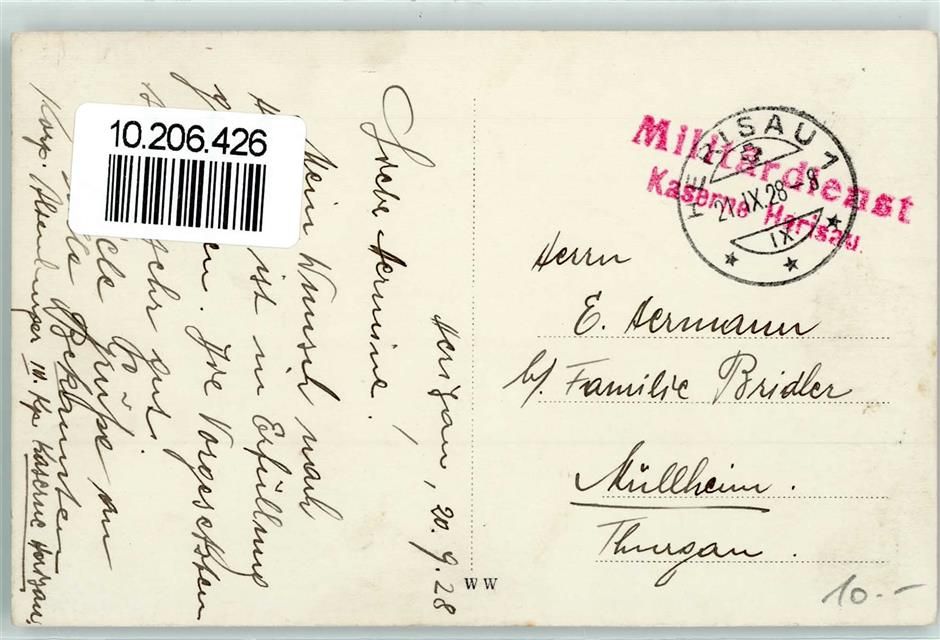 Herisau, 20.9.28
Liebe Hermine!
Mein Wunsch nach
ist in Erfüllung
Die Vorgesetzten
sehr gut.
Viele Grüsse an
alle Bekannten
Korp. III. Kp. Kaserne Herisau.
10.206.426
Militärdienst
Kaserne Herisau
HERISAU 1
21.IX.28 - 8
IX
Herrn
E. Hermann
b/. Familie Bridler
Müllheim.
Thurgau.
WW
10.-